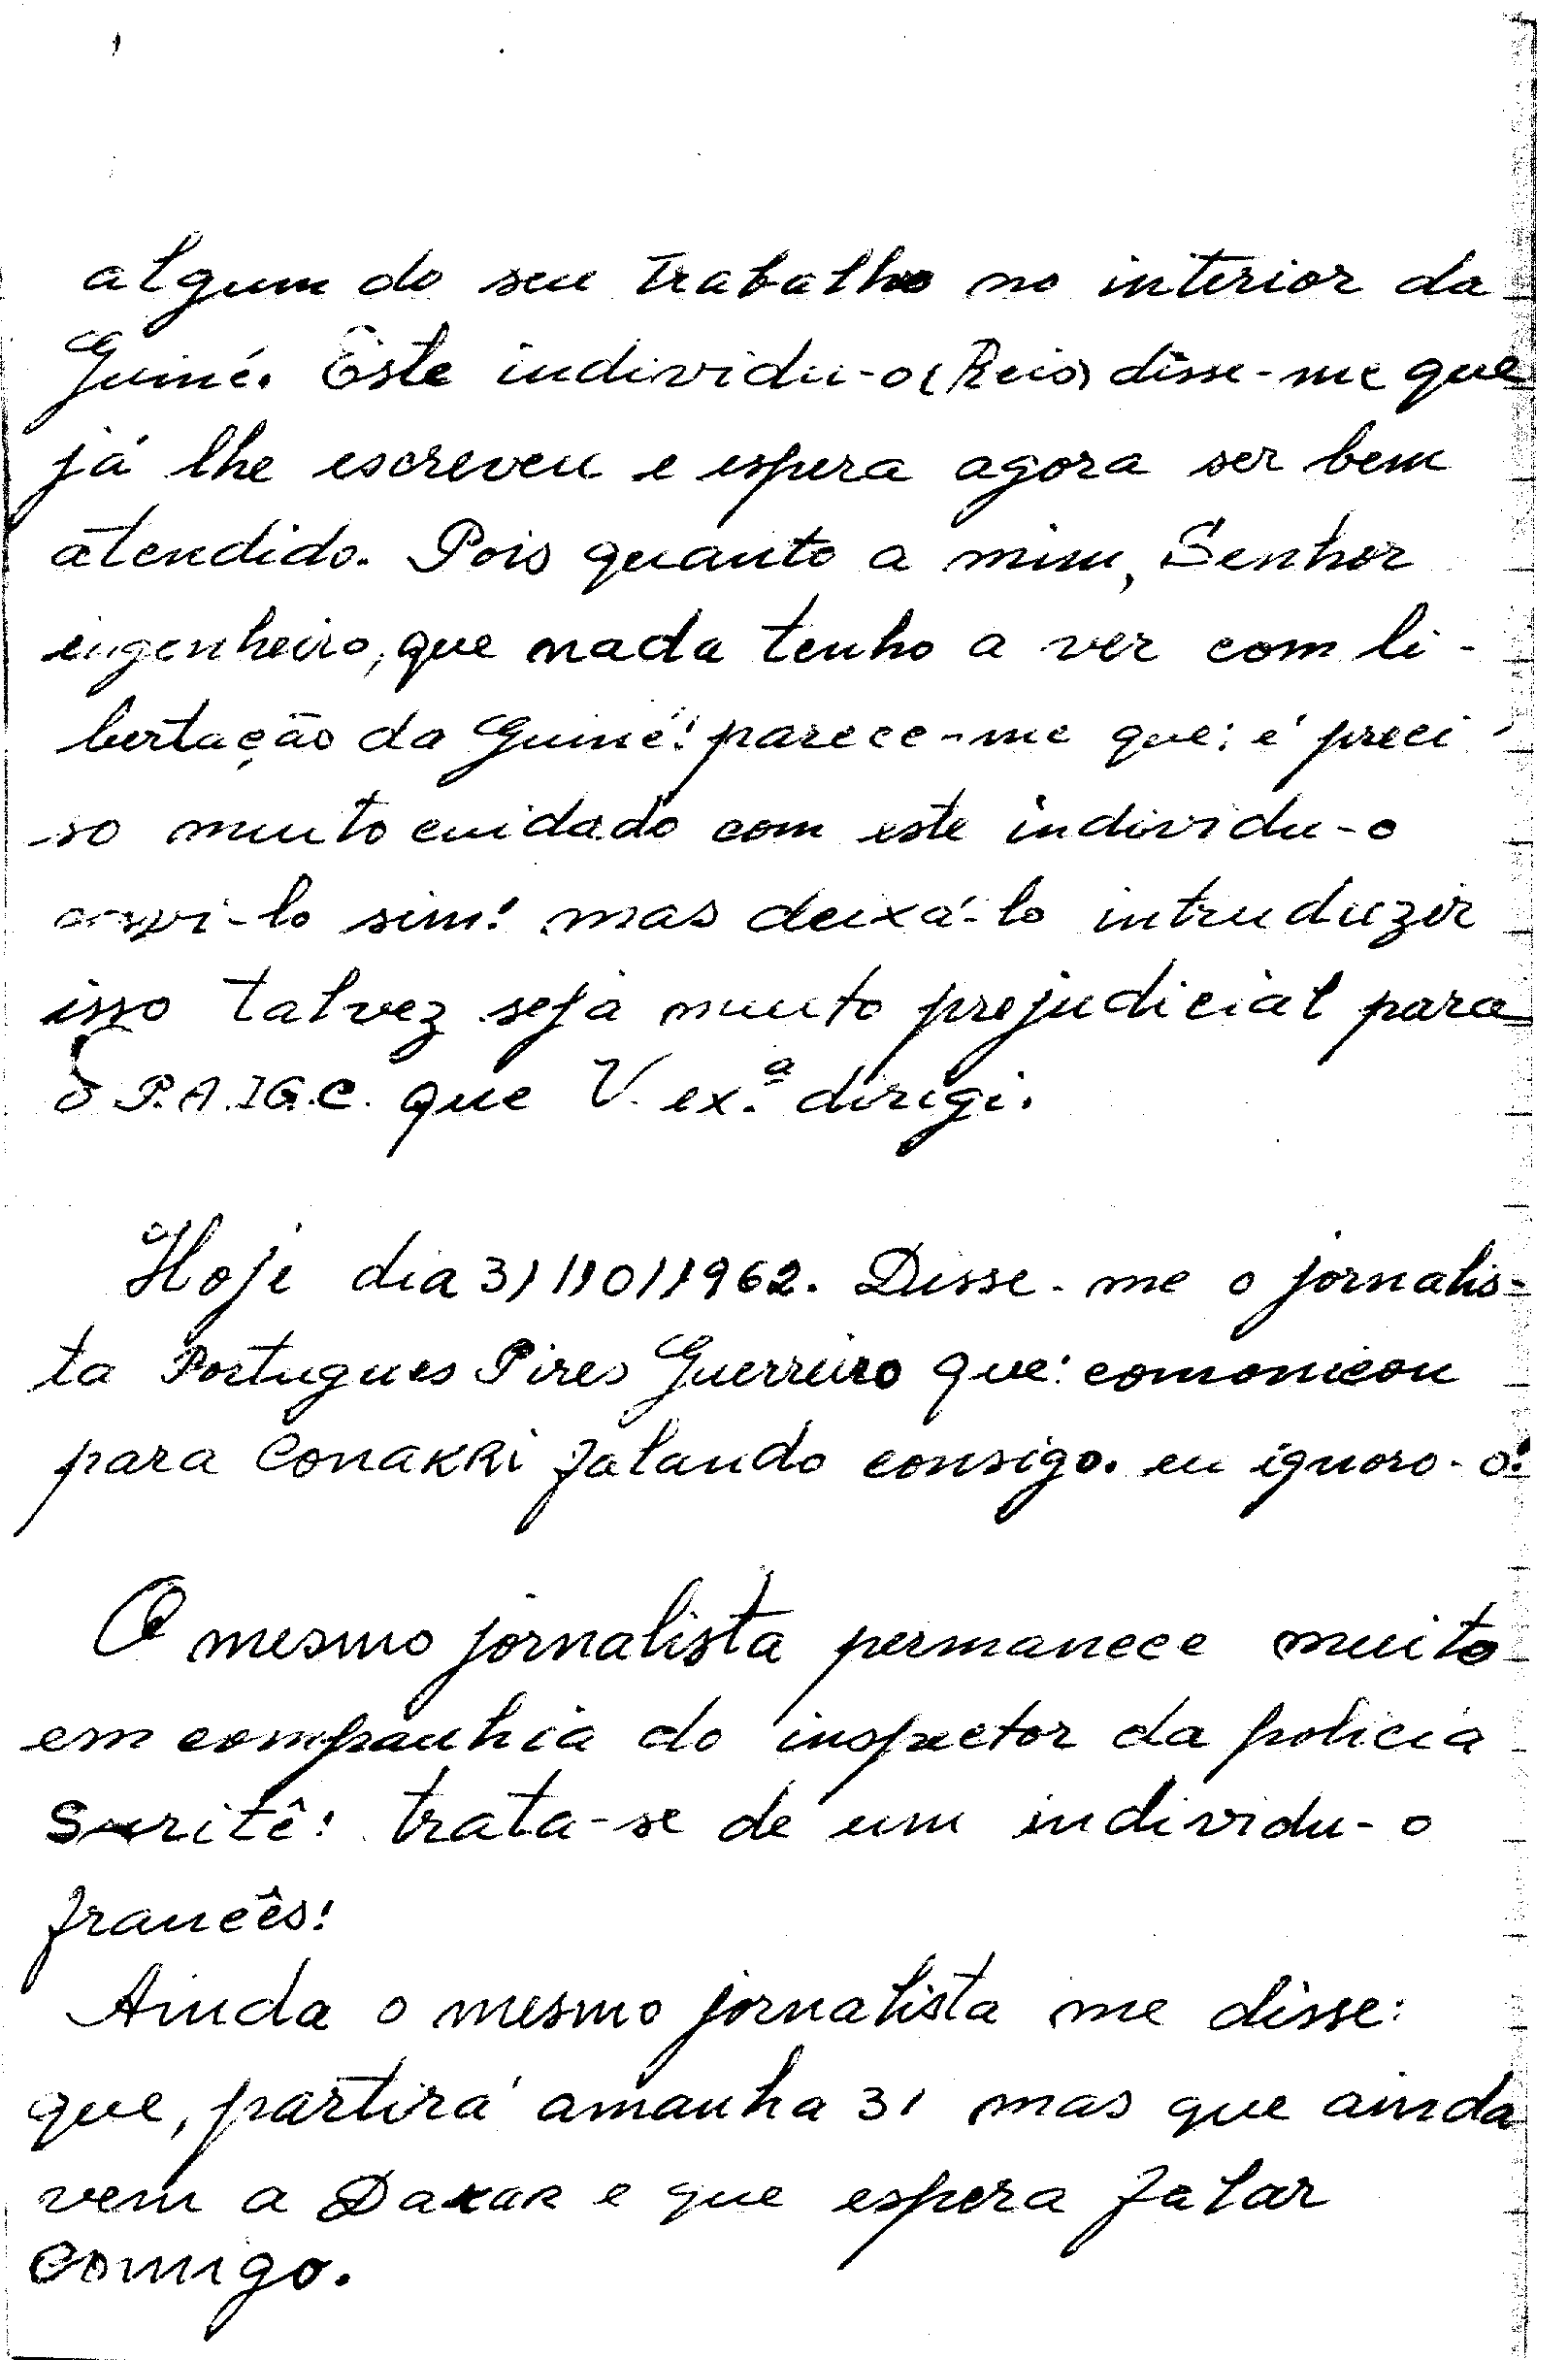 algum do seu trabalho no interior da
Guiné. Este individu-o (Reis) disse-me que
já lhe escreveu e espera agora ser bem
atendido. Pois quanto a mim, Senhor
engenheiro, que nada tenho a ver com li-
bertação da Guiné! parece-me que: é preci-
so muito cuidado com este individu-o
ouvi-lo sim! mas deixá-lo intruduzir
isso talvez seja muito prejudicial para
o P.A.I.G.C. que V. ex.ª dirigi.
Hoje dia 31/10/1962. Disse-me o jornalis-
ta Portugues Pires Guerreiro que: comonicou
para CONAKRi falando consigo. eu ignoro-o!
O mesmo jornalista permanece muito
em companhia do inspector da policia
Suritê! trata-se de um individu-o
francês!
Ainda o mesmo jornalista me disse:
que, partirá amanha 31 mas que ainda
vem a Dakar e que espera falar
comigo.